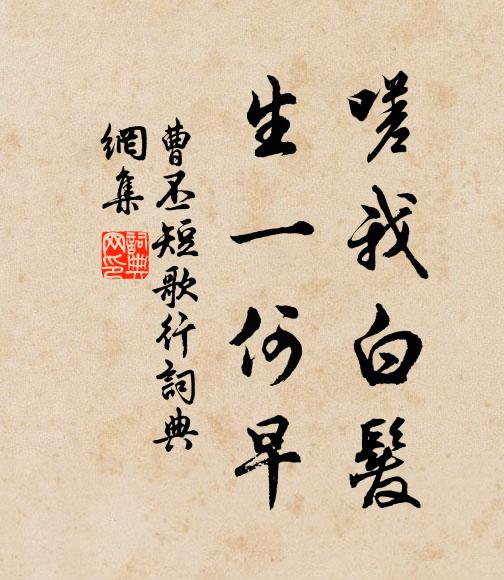 嗟我白髮
生一何早
曹丕短歌行詞典
網集
詞典
网印